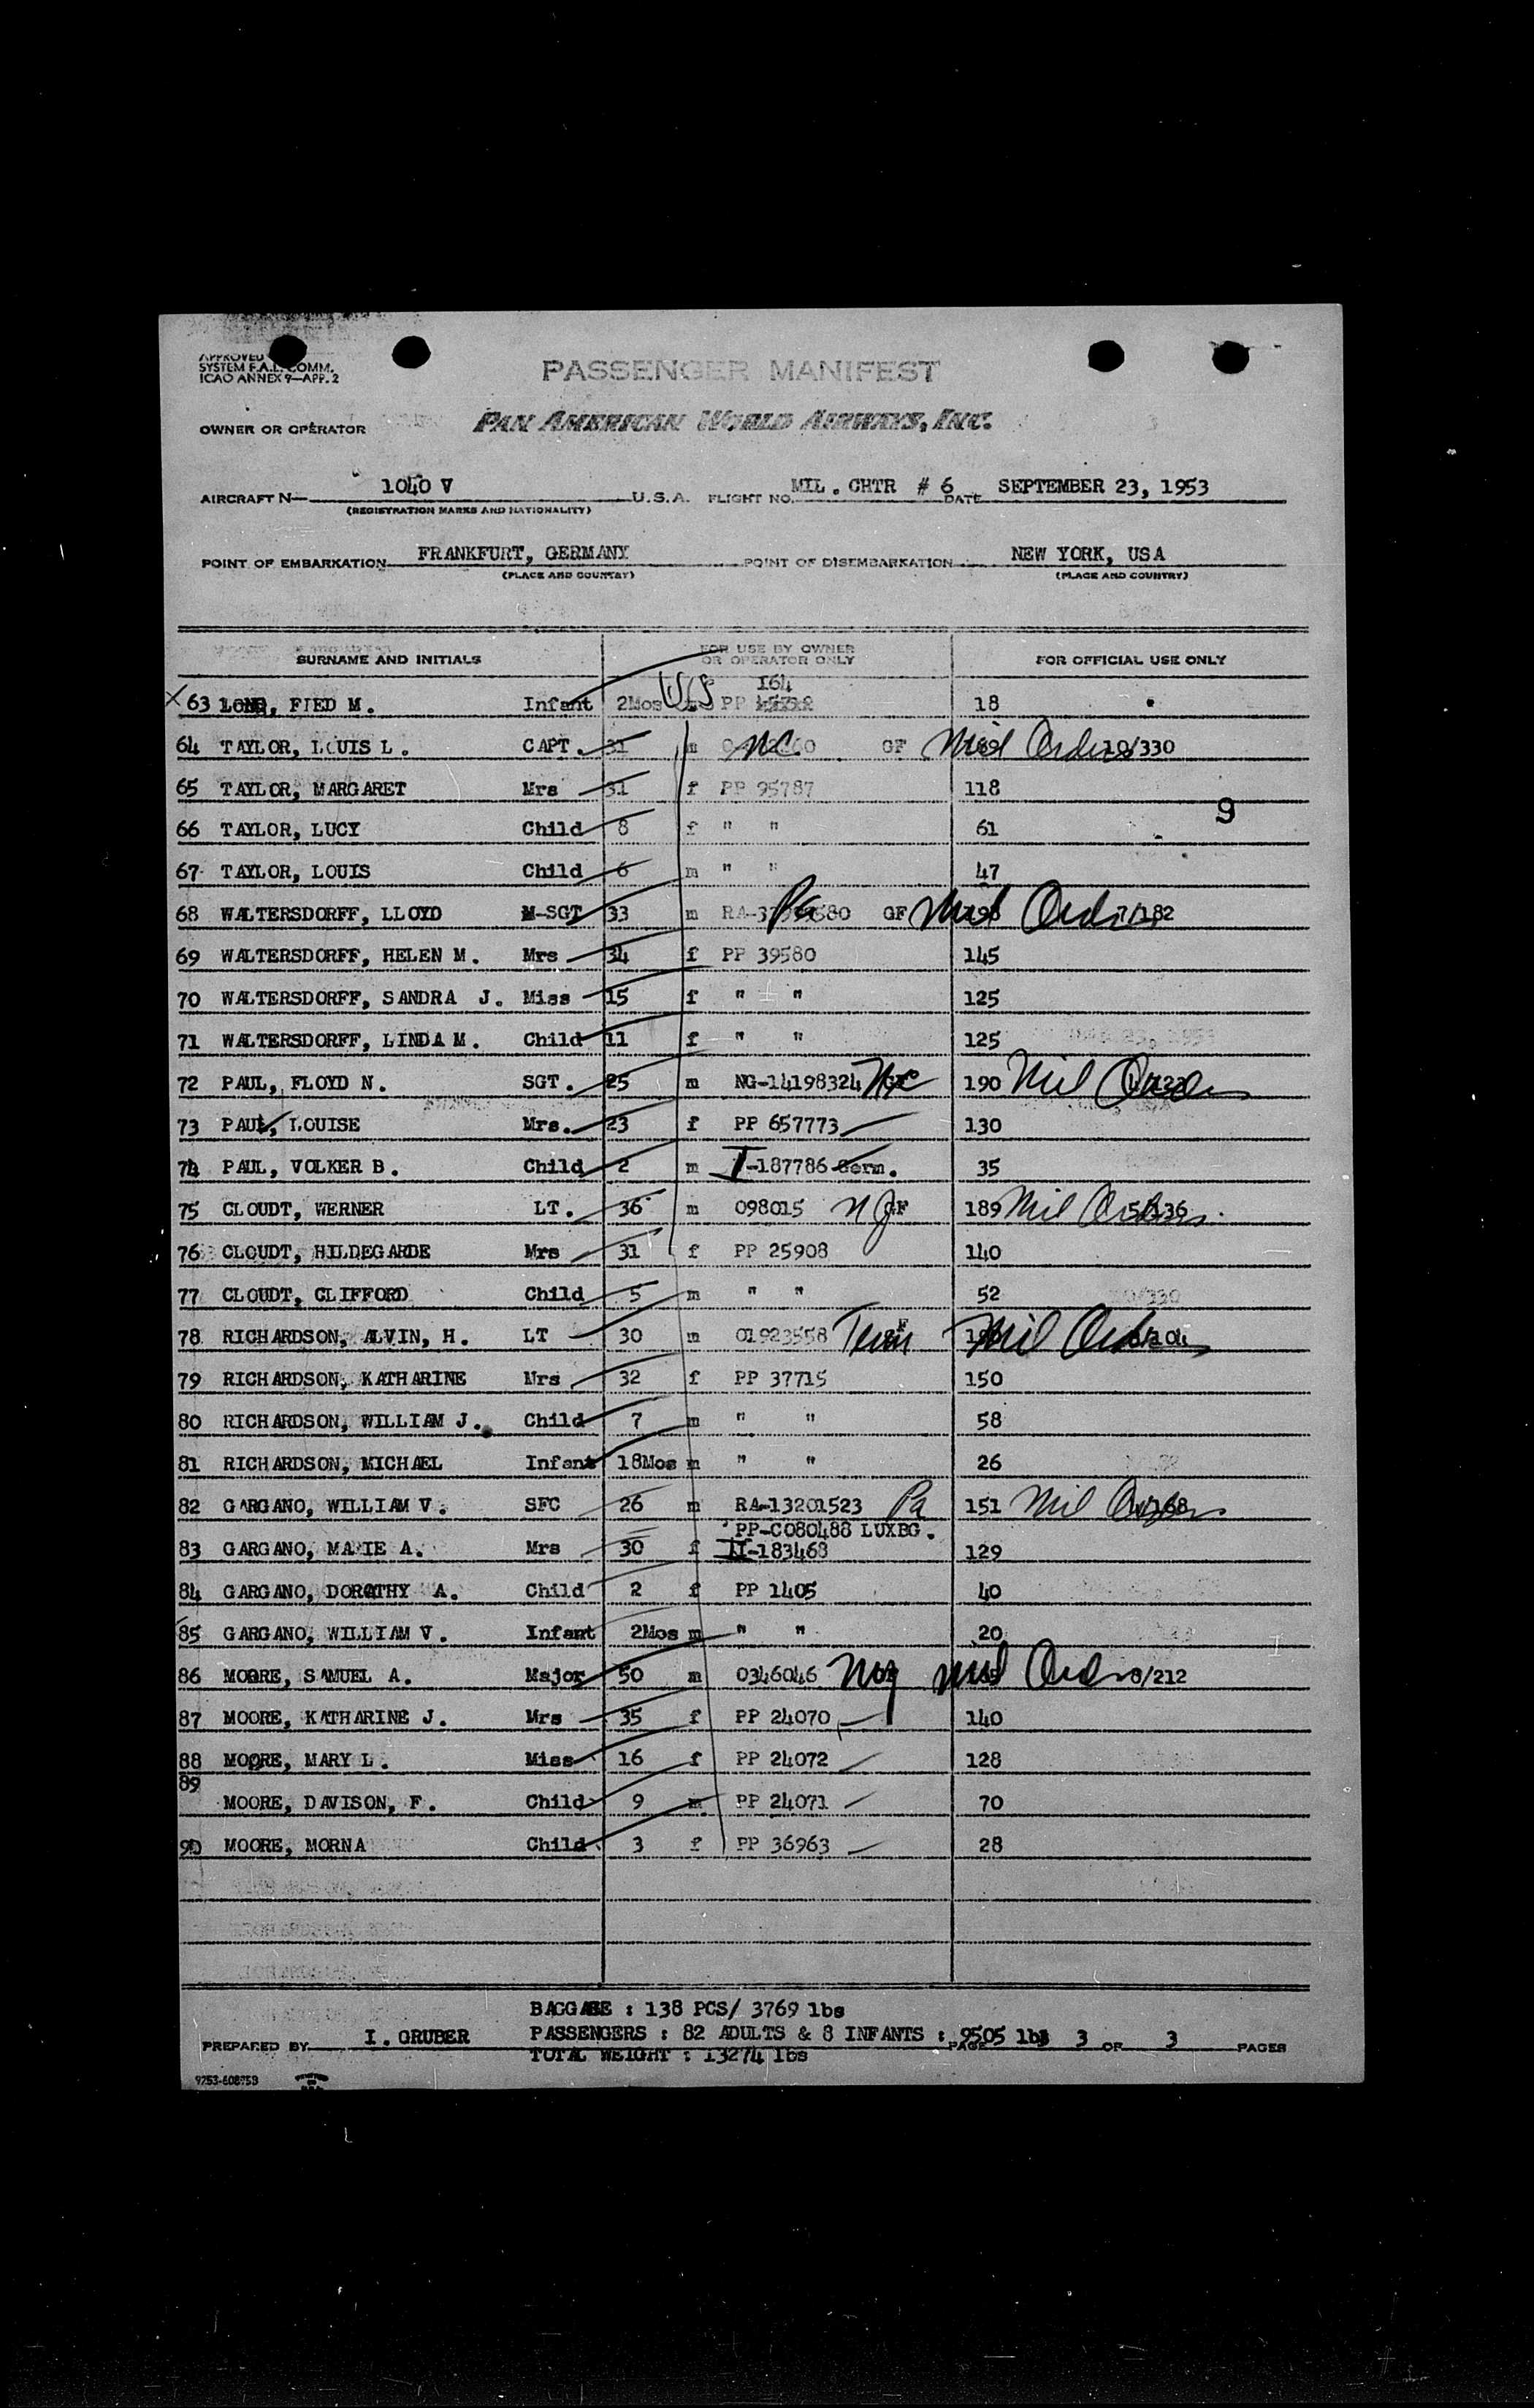 APPROVED
SYSTEM F.A.L. COMM.
ICAO ANNEX 9—APP. 2
PASSENGER MANIFEST
OWNER OR OPERATOR PAN AMERICAN WORLD AIRWAYS, INC.
AIRCRAFT N— 1040 V U.S.A. FLIGHT NO. MIL. CHTR # 6 DATE SEPTEMBER 23, 1953
(REGISTRATION MARKS AND NATIONALITY)
POINT OF EMBARKATION FRANKFURT, GERMANY POINT OF DISEMBARKATION NEW YORK, USA
(PLACE AND COUNTRY) (PLACE AND COUNTRY)
SURNAME AND INITIALS FOR USE BY OWNER OR OPERATOR ONLY FOR OFFICIAL USE ONLY
164
X 63 LONG, FIED M. Infant 2Mos US PP 18
64 TAYLOR, LOUIS L. CAPT. 31 m NC GF Mil Orders 10/330
65 TAYLOR, MARGARET Mrs 31 f PP 95787 118
9
66 TAYLOR, LUCY Child 8 f " " 61
67 TAYLOR, LOUIS Child 6 m " " 47
68 WALTERSDORFF, LLOYD M-SGT 33 m Pa GF Mil Ord 7/182
69 WALTERSDORFF, HELEN M. Mrs 34 f PP 39580 145
70 WALTERSDORFF, SANDRA J. Miss 15 f " " 125
71 WALTERSDORFF, LINDA M. Child 11 f " " 125
72 PAUL, FLOYD N. SGT. 25 m NG-14198324 NC 190 Mil Orders
73 PAUL, LOUISE Mrs. 23 f PP 657773 130
74 PAUL, VOLKER B. Child 2 m I-187786 Germ. 35
75 CLOUDT, WERNER LT. 36 m 098015 NJ GF 189 Mil Orders
76 CLOUDT, HILDEGARDE Mrs 31 f PP 25908 140
77 CLOUDT, CLIFFORD Child 5 m " " 52
78 RICHARDSON, ALVIN, H. LT 30 m 01923558 Tenn Mil Orders
79 RICHARDSON, KATHARINE Mrs 32 f PP 37715 150
80 RICHARDSON, WILLIAM J. Child 7 m " " 58
81 RICHARDSON, MICHAEL Infant 18Mos m " " 26
82 GARGANO, WILLIAM V. SFC 26 m RA-13201523 Pa 151 Mil Orders
PP-C080488 LUXBG.
83 GARGANO, MARIE A. Mrs 30 f II-183468 129
84 GARGANO, DOROTHY A. Child 2 f PP 1405 40
85 GARGANO, WILLIAM V. Infant 2Mos m " " 20
86 MOORE, SAMUEL A. Major 50 m 0346046 NY Mil Ord 8/212
87 MOORE, KATHARINE J. Mrs 35 f PP 24070 140
88 MOORE, MARY L. Miss 16 f PP 24072 128
89
MOORE, DAVISON, F. Child 9 m PP 24071 70
90 MOORE, MORNA Child 3 f PP 36963 28
BAGGAGE : 138 PCS/ 3769 lbs
PREPARED BY I. GRUBER PASSENGERS : 82 ADULTS & 8 INFANTS : 9505 lbs PAGE 3 OF 3 PAGES
TOTAL WEIGHT : 13274 lbs